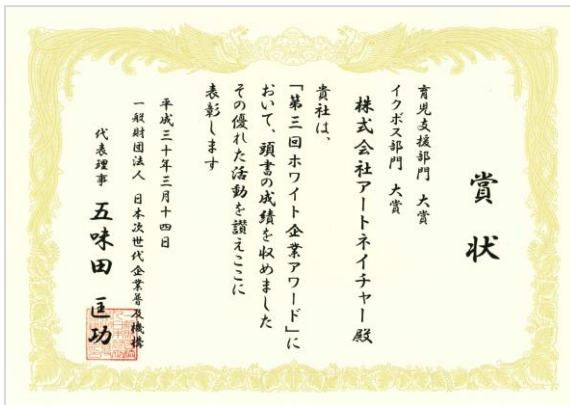 賞状
育児支援部門 大賞
イクボス部門 大賞
株式会社アートネイチャー殿
貴社は、
「第三回ホワイト企業アワード」に
おいて、頭書の成績を収めました
その優れた活動を讃えここに
表彰します
平成三十年三月十四日
一般財団法人 日本次世代企業普及機構
代表理事 五味田 匡功